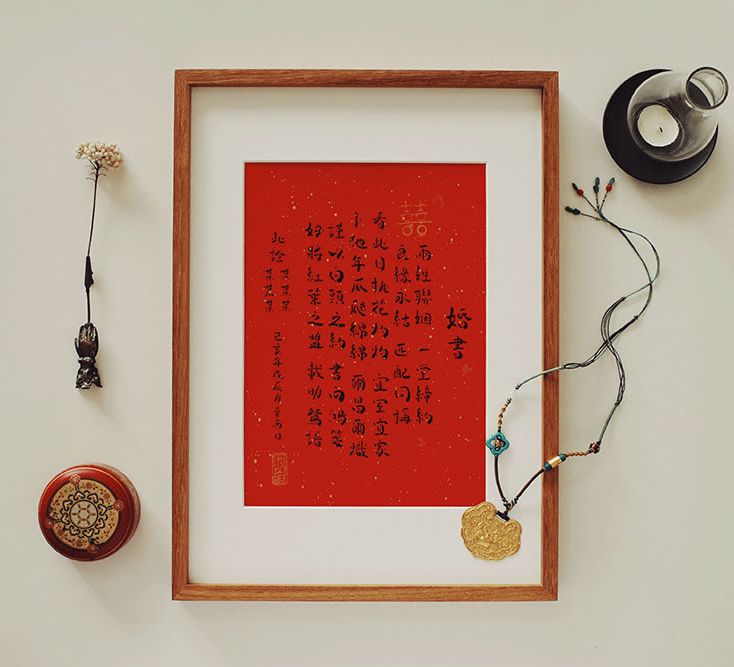 婚書
囍
兩姓聯姻 一堂締約
良緣永結 匹配同稱
看此日桃花灼灼 宜室宜家
卜他年瓜瓞綿綿 爾昌爾熾
謹以白頭之約 書向鴻箋
好將紅葉之盟 載明鴛譜
此證
某某某
某某某
己亥年戊辰月